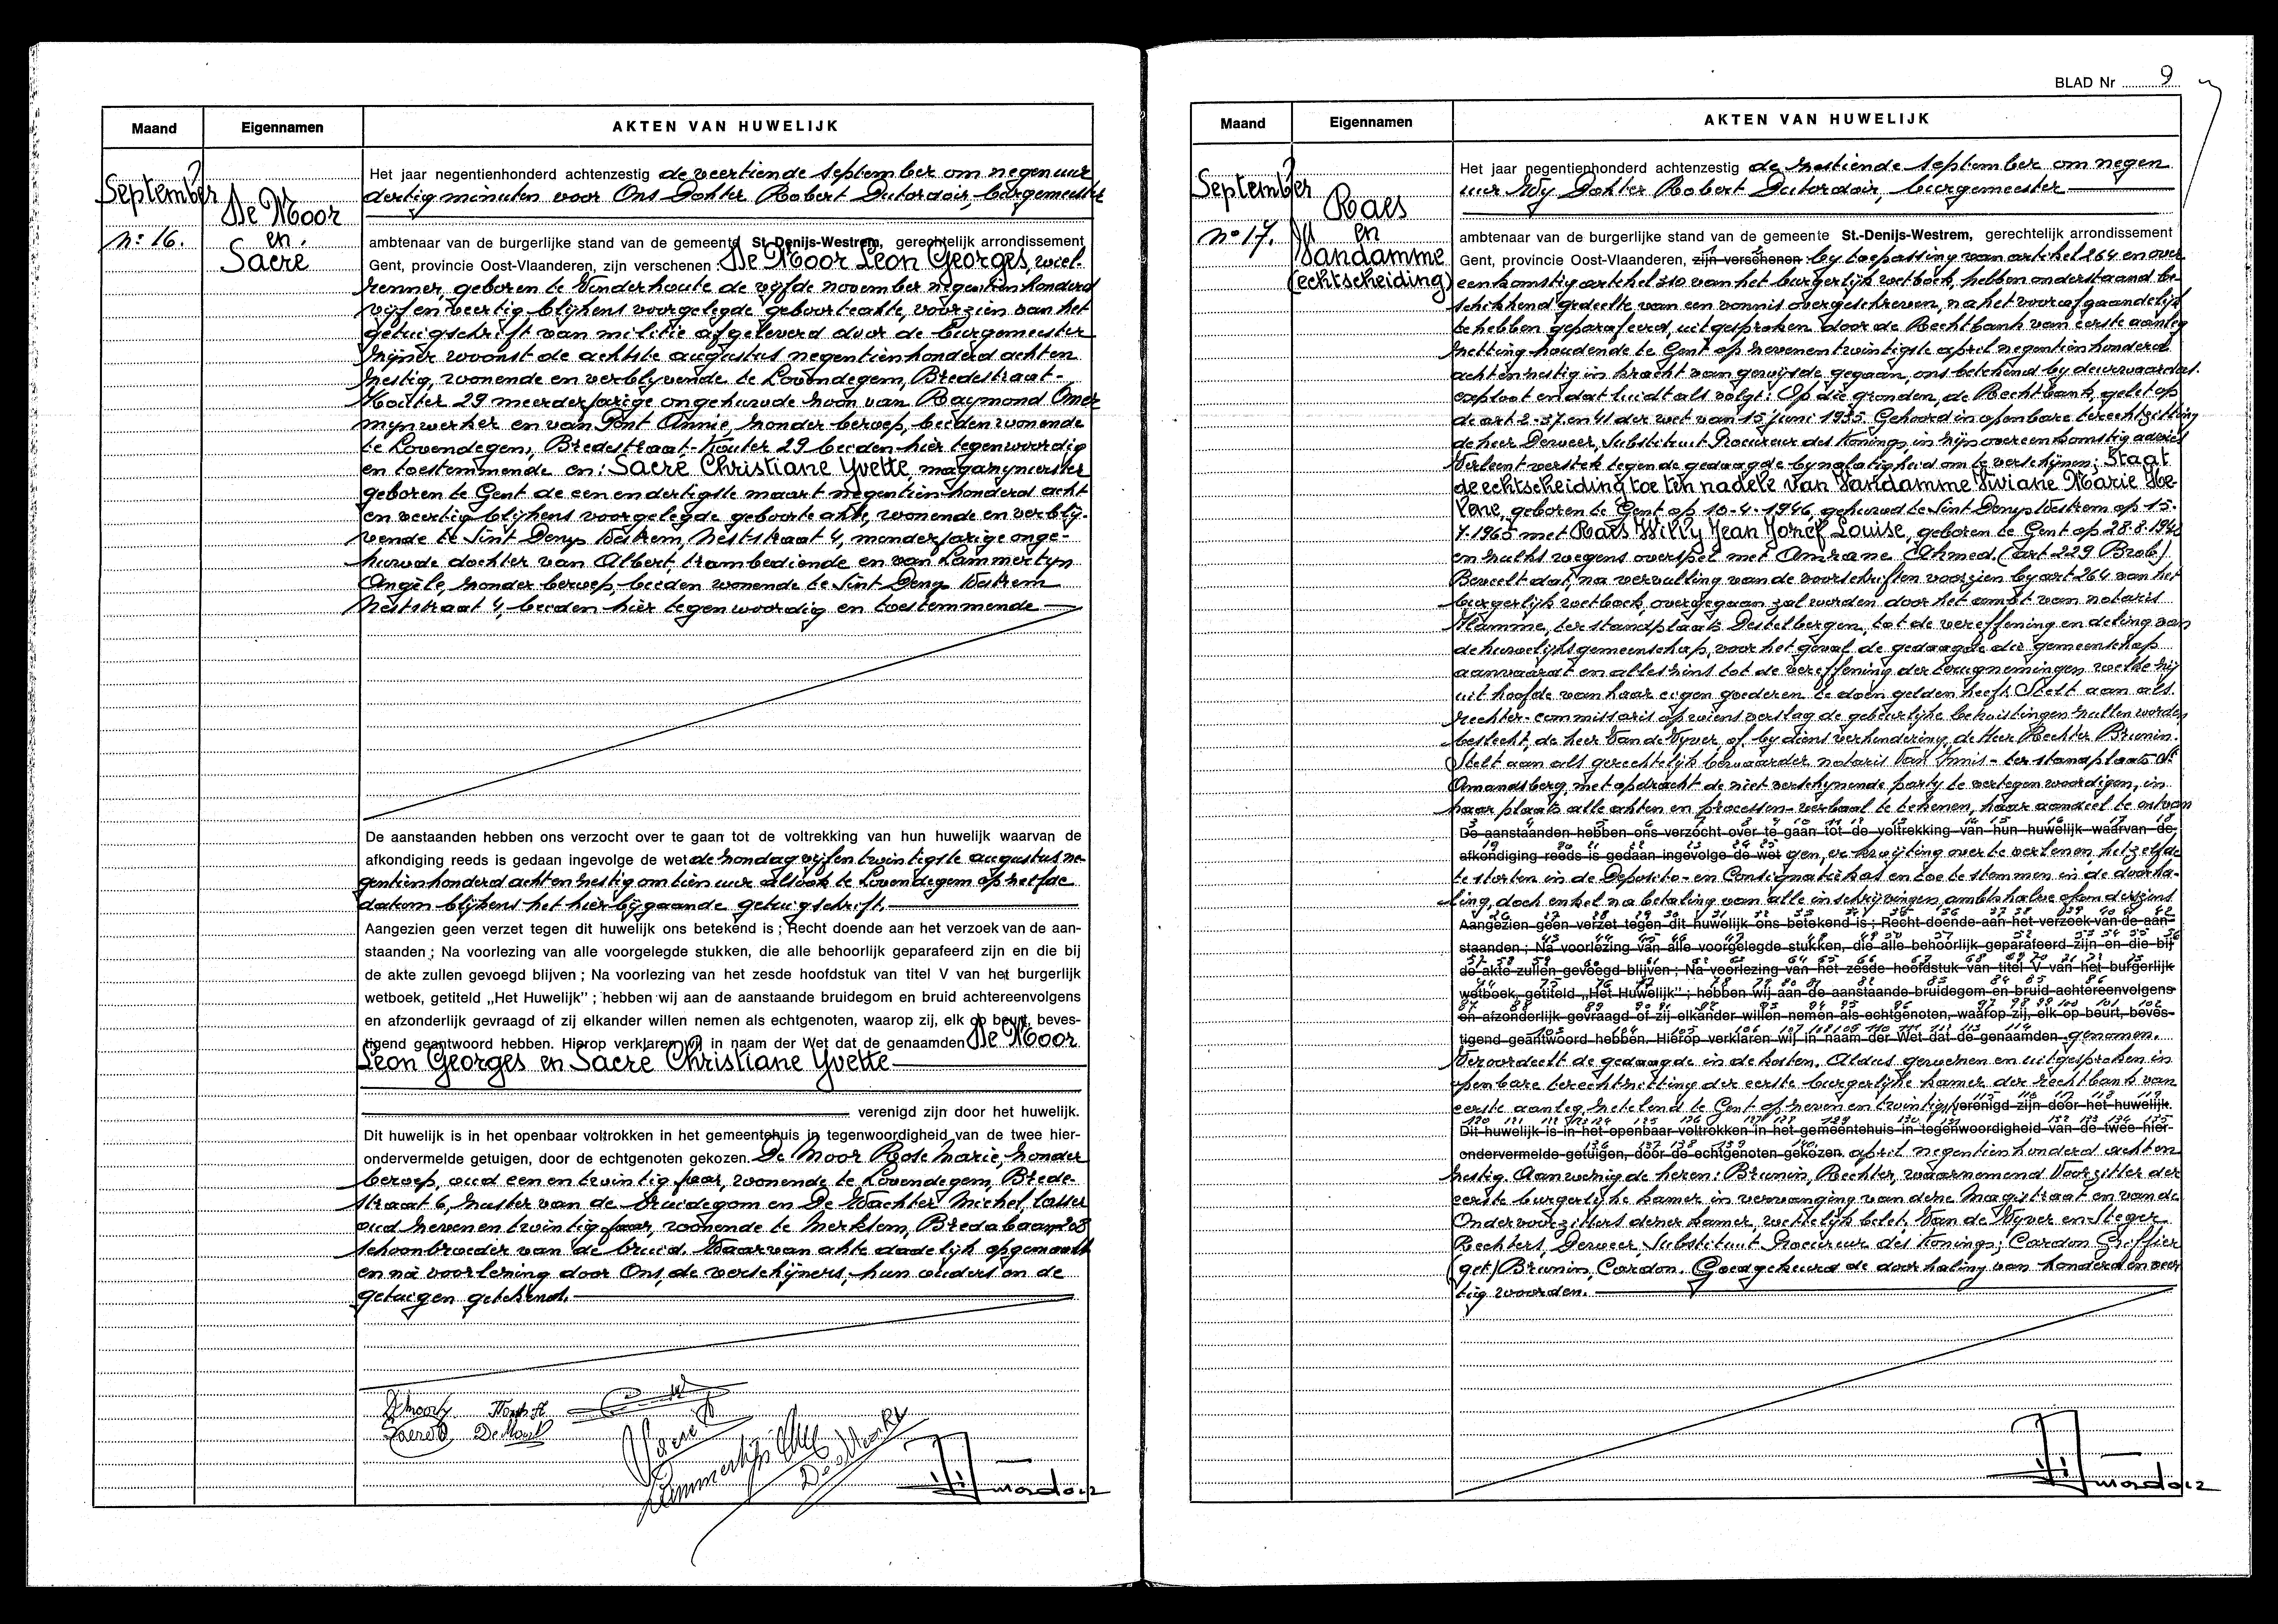 Maand
Eigennamen
AKTEN VAN HUWELIJK
September
n: 16.
De Moor
en.
Sacré
Het jaar negentienhonderd achtenzestig de veertiende september om negen uur
dertig minuten voor Ons Dokter Robert Dutordoir, burgemeester
ambtenaar van de burgerlijke stand van de gemeente St.-Denijs-Westrem, gerechtelijk arrondissement
Gent, provincie Oost-Vlaanderen, zijn verschenen : De Moor Leon Georges, wiel-
renner, geboren te Vinderhoute de vijfde november negentienhonderd
vijf en veertig blijkens voorgelegde geboorteakte, voorzien van het
getuigschrift van militie afgeleverd door de burgemeester
zijner woonst de achtste augustus negentienhonderd achten
zestig, wonende en verblyvende te Lovendegem, Bredestraat-
Kouter 29 meerderjarige ongehuwde zoon van Raymond Omer
mynwerker en van Pont Annie, zonder beroep, beiden wonende
te Lovendegem, Bredestraat-Kouter 29 beiden hier tegenwoordig
en toestemmende en: Sacré Christiane Yvette, magazynierster
geboren te Gent de een en dertigste maart negentienhonderd acht
en veertig blijkens voorgelegde geboorte akte, wonende en verblij-
vende te Sint Denys Westrem, Neststraat 4, minderjarige onge-
huwde dochter van Albert, trambediende en van Lammertyn
Angèle, zonder beroep, beiden wonende te Sint Denys Westrem
Neststraat 4, beiden hier tegenwoordig en toestemmende
De aanstaanden hebben ons verzocht over te gaan tot de voltrekking van hun huwelijk waarvan de
afkondiging reeds is gedaan ingevolge de wet de zondag vijfentwintigste augustus ne-
gentienhonderd achtenzestig om tien uur alsook te Lovendegem op zelfde
datum blijkens het hierbijgaande getuigschrift.
Aangezien geen verzet tegen dit huwelijk ons betekend is ; Recht doende aan het verzoek van de aan-
staanden ; Na voorlezing van alle voorgelegde stukken, die alle behoorlijk geparafeerd zijn en die bij
de akte zullen gevoegd blijven ; Na voorlezing van het zesde hoofdstuk van titel V van het burgerlijk
wetboek, getiteld „Het Huwelijk" ; hebben wij aan de aanstaande bruidegom en bruid achtereenvolgens
en afzonderlijk gevraagd of zij elkander willen nemen als echtgenoten, waarop zij, elk op beurt, beves-
tigend geantwoord hebben. Hierop verklaren wij in naam der Wet dat de genaamden De Moor
Leon Georges en Sacré Christiane Yvette
verenigd zijn door het huwelijk.
Dit huwelijk is in het openbaar voltrokken in het gemeentehuis in tegenwoordigheid van de twee hier-
ondervermelde getuigen, door de echtgenoten gekozen. De Moor Rose Marie, zonder
beroep, oud een en twintig jaar, wonende te Lovendegem, Brede-
straat 6, zuster van de bruidegom en De Wachter Michel, lasser
oud zeven en twintig jaar, wonende te Merksem, Bredabaan
schoonbroeder van de bruid. Waarvan akte dadelijk opgemaakt
en na voorlezing door Ons, de verschijners, hun ouders en de
getuigen getekend.
BLAD Nr 9
Maand
Eigennamen
AKTEN VAN HUWELIJK
September
n° 17.
Raes
en
Vandamme
(echtscheiding)
Het jaar negentienhonderd achtenzestig de zestiende september om negen
uur Wij Dokter Robert Dutordoir, burgemeester
ambtenaar van de burgerlijke stand van de gemeente St.-Denijs-Westrem, gerechtelijk arrondissement
Gent, provincie Oost-Vlaanderen, zijn verschenen by toepassing van artikel 264 en over
eenkomstig artikel 310 van het burgerlijk wetboek, hebben onderstaand be-
schikkend gedeelte van een vonnis overgeschreven, na het voorafgaandelijk
te hebben geparafeerd, uitgesproken door de Rechtbank van eerste aanleg
zetting houdende te Gent op zevenentwintigste april negentienhonderd
achtenzestig in kracht van gewijsde gegaan, ons betekend by deurwaarders.
exploot en dat luidt als volgt: Op die gronden, de Rechtbank, gelet op
de art 2-37 en 41 der wet van 15 juni 1935. Gehoord in openbare terechtzitting
de heer Derweer, Substituut Procureur des Konings, in zijn overeenkomstig advies
Verleent verstek tegen de gedaagde by nalatigheid om te verschijnen; Staat
de echtscheiding toe ten nadele van Vandamme Viviane Marie He-
lene, geboren te Gent op 10-4-1946, gehuwd te Sint Denys Westrem op 15.
7.1965 met Raes Willy Jean Jozef Louise, geboren te Gent op 28.8.1942
en zulks wegens overspel met Amrane Ahmed. (art 229 Brob)
Beveelt dat, na vervulling van de voorschriften voorzien by art 264 van het
burgerlijk wetboek, overgegaan zal worden door het ambt van notaris
Vlamme, ter standplaats Destelbergen, tot de vereffening en deling van
de huwelijksgemeenschap, voor het geval de gedaagde die gemeenschap
aanvaardt en alleszins tot de vereffening der terugnemingen welke zij
uit hoofde van haar eigen goederen te doen gelden heeft. Stelt aan als
rechter-commissaris op wiens verslag de gebeurlijke betwistingen zullen worden
beslecht, de heer Van de Vyver of, by diens verhindering, de Heer Rechter Brunin.
Stelt aan als gerechtelijk bewaarder notaris Van Innis - ter standplaats St
Amandsberg, met opdracht de niet verschijnende party te vertegenwoordigen, in
haar plaats alle akten en processen-verbaal te tekenen, haar aandeel te ontvan
De aanstaanden hebben ons verzocht over te gaan tot de voltrekking van hun huwelijk waarvan de
afkondiging reeds is gedaan ingevolge de wet gen, er kwijting over te verlenen, hetzelfde
te storten in de Deposito- en Consignatiekas en toe te stemmen in de doorha-
ling, doch enkel na betaling van alle inschrijvingen, ambtshalve of anderszins
Aangezien geen verzet tegen dit huwelijk ons betekend is ; Recht doende aan het verzoek van de aan-
staanden ; Na voorlezing van alle voorgelegde stukken, die alle behoorlijk geparafeerd zijn en die bij
de akte zullen gevoegd blijven ; Na voorlezing van het zesde hoofdstuk van titel V van het burgerlijk
wetboek, getiteld „Het Huwelijk" ; hebben wij aan de aanstaande bruidegom en bruid achtereenvolgens
en afzonderlijk gevraagd of zij elkander willen nemen als echtgenoten, waarop zij, elk op beurt, beves-
tigend geantwoord hebben. Hierop verklaren wij in naam der Wet dat de genaamden genomen.
Veroordeelt de gedaagde in de kosten. Aldus gewezen en uitgesproken in
openbare terechtzitting der eerste burgerlijke kamer der rechtbank van
eerste aanleg, zetelend te Gent op zeven en twintig verenigd zijn door het huwelijk.
Dit huwelijk is in het openbaar voltrokken in het gemeentehuis in tegenwoordigheid van de twee hier-
ondervermelde getuigen, door de echtgenoten gekozen. april negentienhonderd achten
zestig. Aanwezig de heren: Brunin, Rechter, waarnemend Voorzitter der
eerste burgerlijke kamer in vervanging van dene Magistraat en van de
Ondervoorzitters dezer kamer, wettelijk belet. Van de Vyver en Steger
Rechters, Derweer Substituut Procureur des Konings; Cardon Griffier
(get) Brunin, Cardon. Goedgekeurd de doorhaling van honderd en veer
tig woorden.